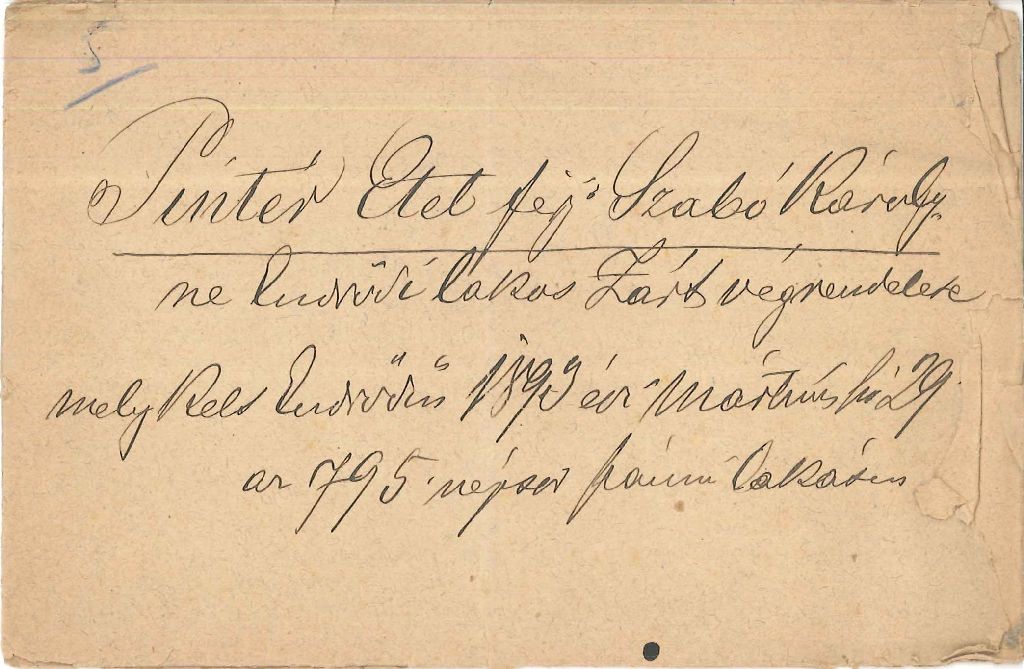 5
Pintér Etel férj: Szabó Károly
ne Endrődi lakos Zárt végrendelete
mely Kelt Endrődön 1893 évi Mártius hó 29
az 795 népsor számú lakásán